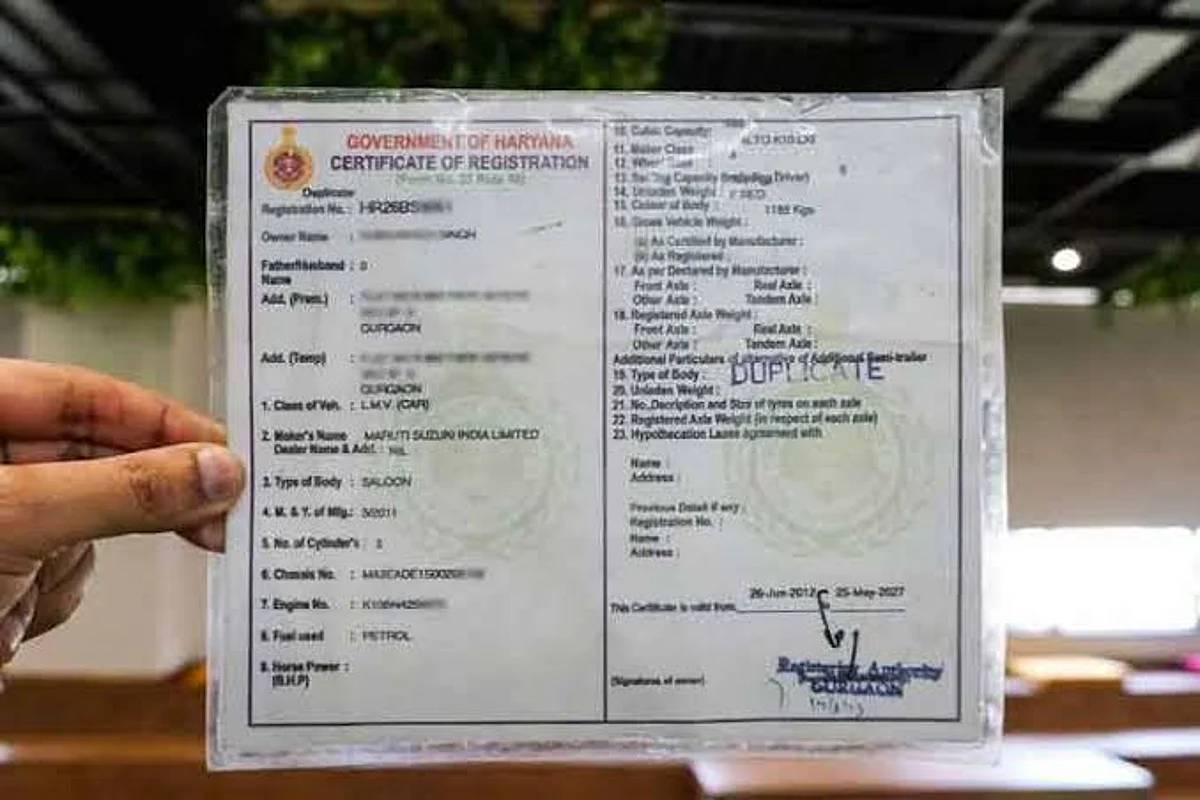 GOVERNMENT OF HARYANA
CERTIFICATE OF REGISTRATION
Duplicate
Registration No. : HR26BS
Owner Name : SINGH
Father/Husband : 0
Name
Add. (Prem.) :
GURGAON
Add. (Temp) :
GURGAON
1. Class of Veh. : L.M.V. (CAR)
2. Maker's Name MARUTI SUZUKI INDIA LIMITED
Dealer Name & Add. : NIL
3. Type of Body : SALOON
4. M. & Y. of Mfg.: 5/2011
5. No. of Cylinder's : 3
6. Chassis No. :
7. Engine No. :
8. Fuel used : PETROL
9. Horse Power :
(B.H.P)
10. Cubic Capacity:
ALTO K10 LXI
11. Maker Class
12. Wheel Base : 4
13. Seating Capacity (Including Driver) 5
14. Unladen Weight :
15. Colour of Body : 1185 Kgs
16. Gross Vehicle Weight :
(a) As Certified by Manufacturer :
(b) As Registered :
17. As per Declared by Manufacturer :
Front Axle : Real Axle :
Other Axle : Tandem Axle :
18. Registered Axle Weight :
Front Axle : Real Axle :
Other Axle : Tandem Axle :
Additional Particulars of alternative of Additional Semi-trailer
19. Type of Body : DUPLICATE
20. Unladen Weight :
21. No. Decription and Size of tyres on each axle
22. Registered Axle Weight (in respect of each axle)
23. Hypothecation Lease agreement with
Name :
Address :
Previous Detail if any :
Registration No. :
Name :
Address :
26-Jun-2012 25-May-2027
This Certificate is valid from
Registering Authority
GURGAON
(Signatures of owner)